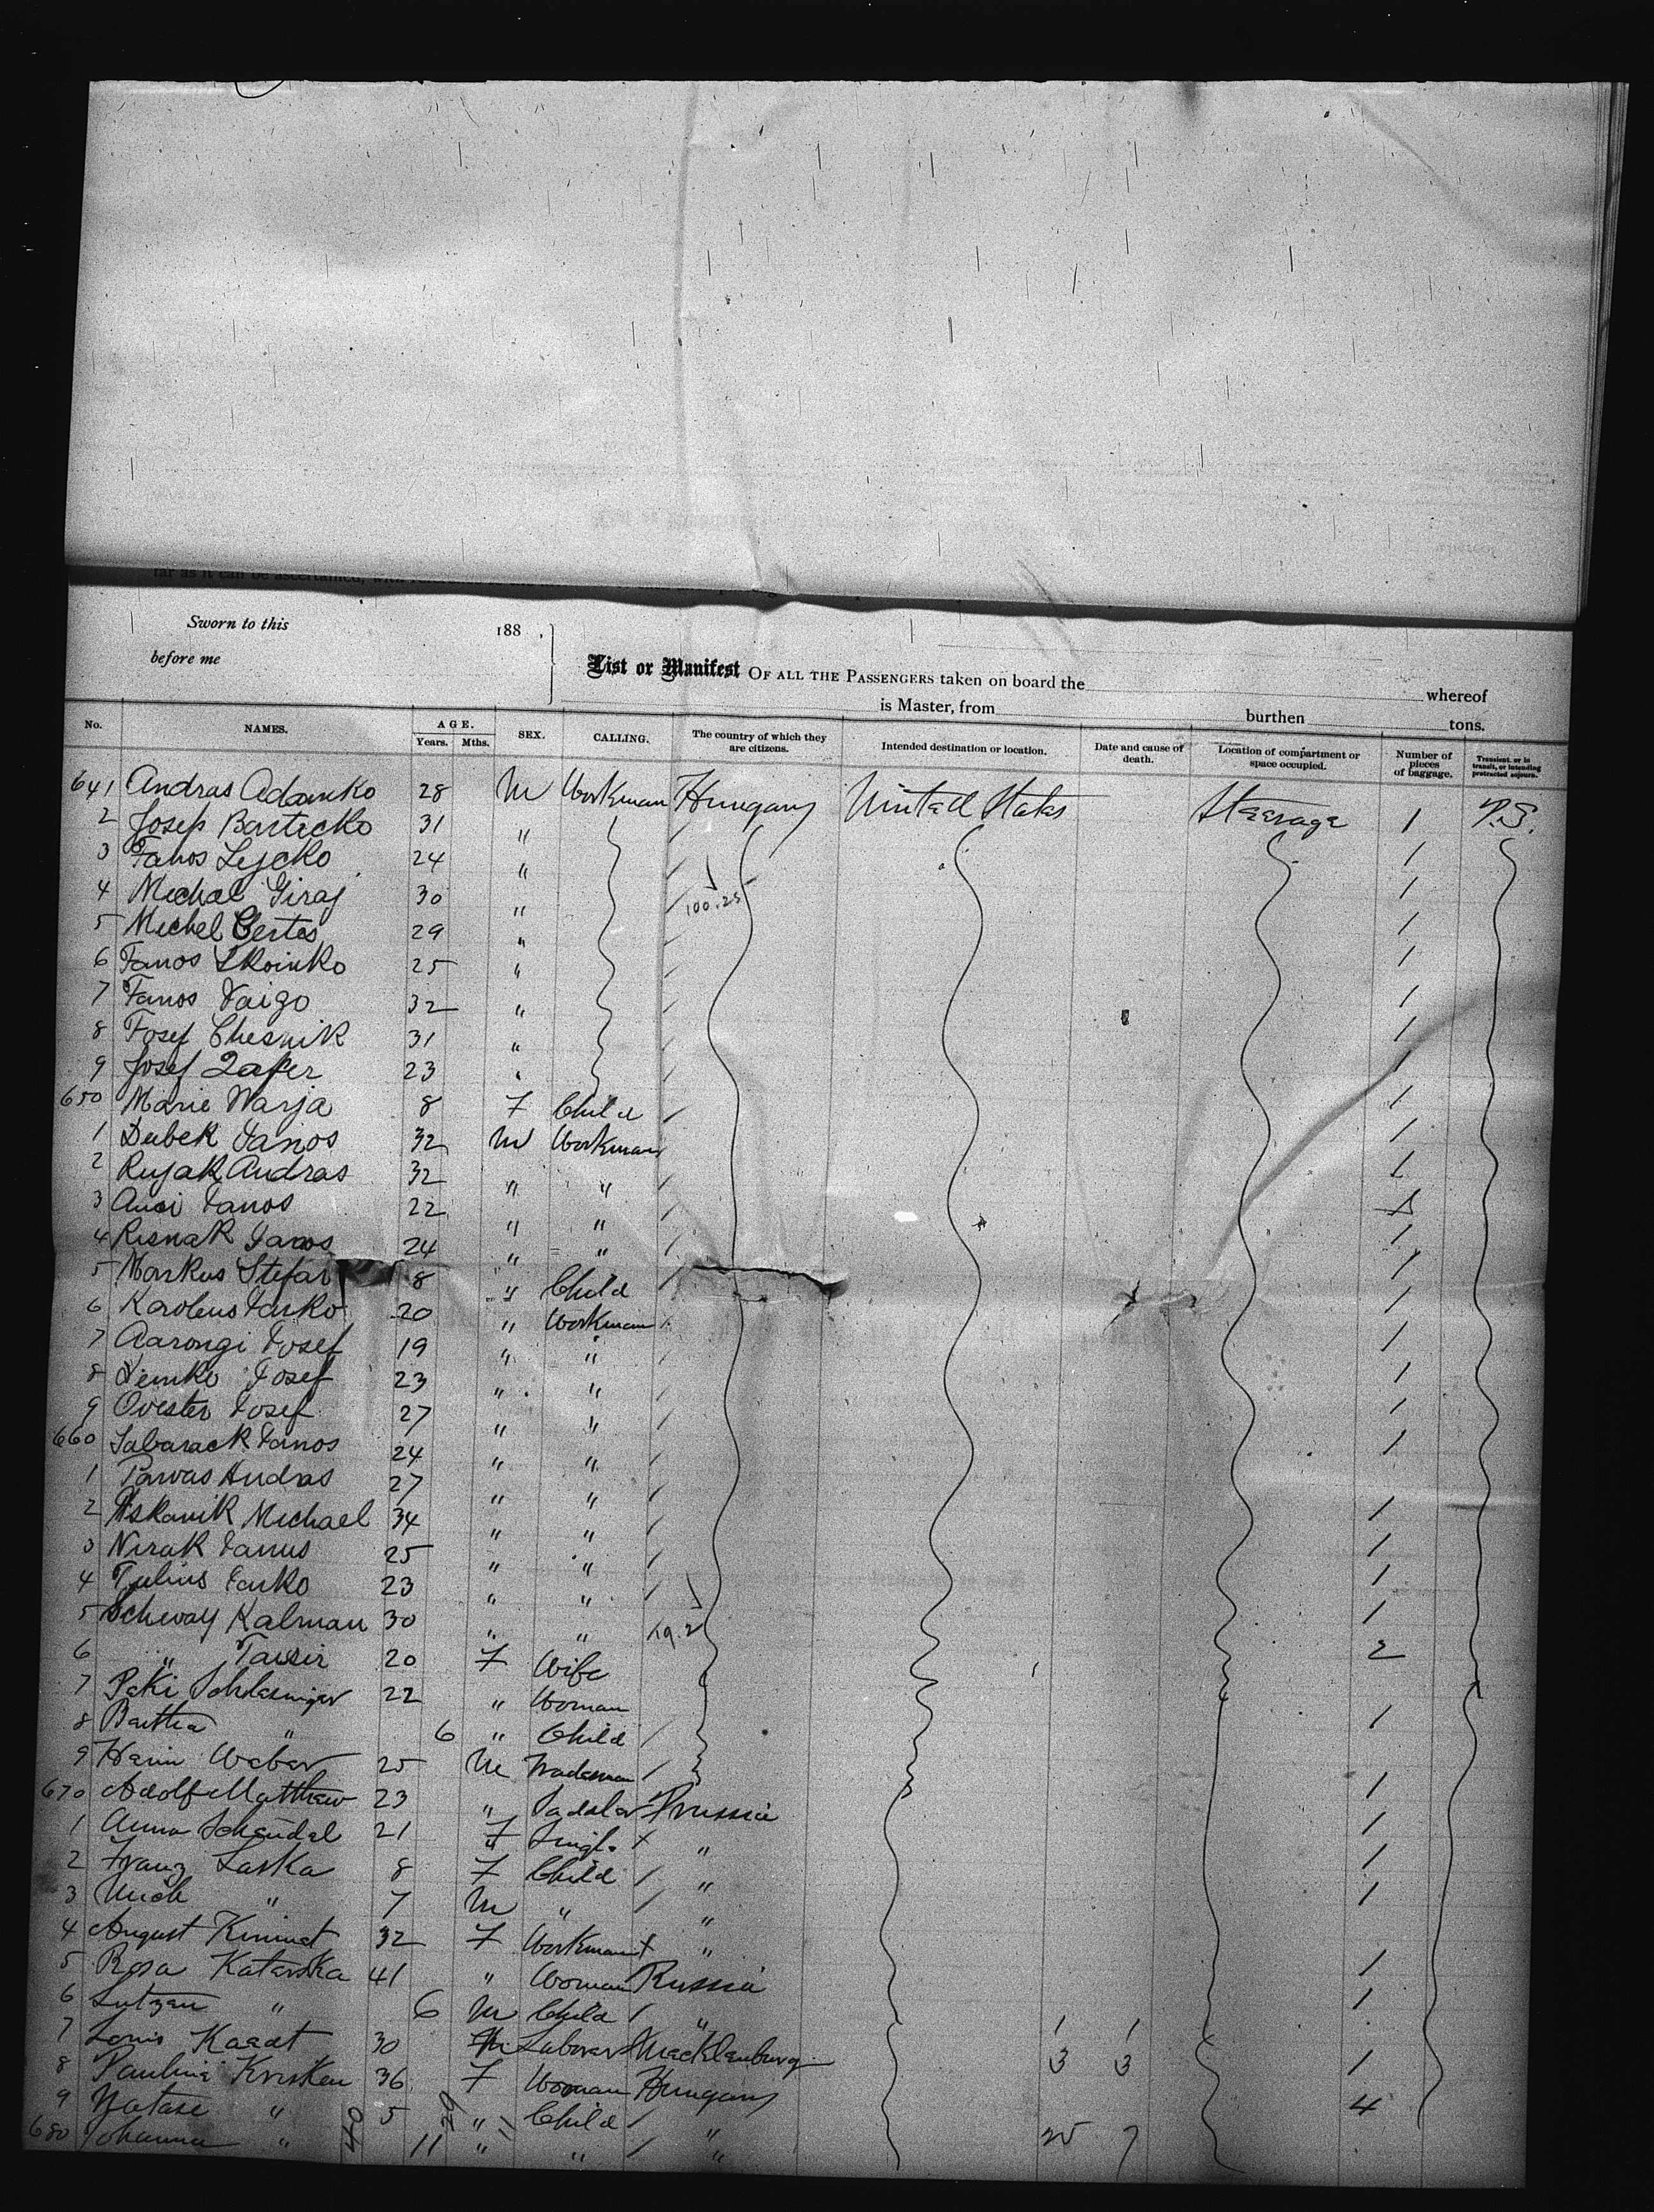 Sworn to this 188 .
before me
List or Manifest OF ALL THE PASSENGERS taken on board the whereof
is Master, from burthen tons.
No. NAMES. AGE. SEX. CALLING. The country of which they are citizens. Intended destination or location. Date and cause of death. Location of compartment or space occupied. Number of pieces of baggage. Transient, or in transit, or intending protracted sojourn.
Years. Mths.
641 Andras Adamko 28 M Workman Hungary United States Steerage 1 P.S.
2 Josep Bartecko 31 " / 1
3 Janos Lejcko 24 " / 1
4 Mechal Giraj 30 " / 100.25 1
5 Mechel 29 " / 1
6 Janos 25 " / 1
7 Janos 32 " / 1
8 Josef Chesnik 31 " / 1
9 Josef 23 " / 1
650 Marie Warja 8 F Child / 1
1 Dubek Janos 32 M Workman 1
2 Rujak Andras 32 " " / 1
3 Janos 22 " " /
4 Risnak Janos 24 " " / 1
5 Markus Stefan 8 " Child / 1
6 Janko 20 " Workman / 1
7 Aarongi Josef 19 " " / 1
8 Josef 23 " " / 1
9 Ovester Josef 27 " " / 1
660 Labarack Janos 24 " " / 1
1 Andras 27 " " /
2 Michael 34 " " / 1
3 Nirak Janus 25 " " / 1
4 Julius Janko 23 " " / 1
5 Schwary Kalman 30 " " 1
6 " 20 F Wife 2
7 Schlesinger 22 " Woman
8 Bertha " 6 " Child / 1
9 Weber 25 M Tradesman /
670 Adolf Matthew 23 " Saddler Prussia 1
1 Anna Schendel 21 F Single " 1
2 Franz Laska 8 F Child / " 1
3 " 7 M " / " 1
4 August 32 F Workman "
5 Rosa Katarska 41 " Woman Russia 1
6 " 6 M Child / " 1
7 Louis Kaadt 30 M Laborer Mecklenburg
8 Paulina 36 F Woman Hungary 1
9 " 5 " Child / " 4
680 Johanna " 11 " " / "